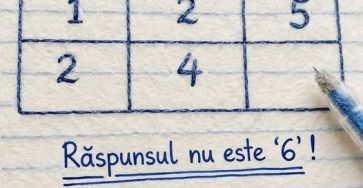 1 2 5
2 4
Răspunsul nu este '6'!